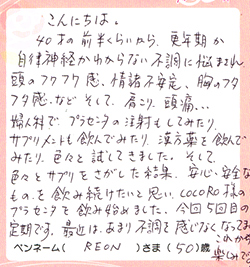 こんにちは。
40才の前半くらいから、更年期か
自律神経かわからない不調に悩まされ
頭のフワフワ感、情緒不安定、胸のフタ
フタ感など そして、肩こり、頭痛…
婦人科で、プラセンタの注射もしてみたり、
サプリメントも飲んでみたり、漢方薬を飲んで
みたり、色々と試してきました。そして、
色々とサプリをさがした結果、安心・安全な
ものを飲み続けたいと思い、COCORO様の
プラセンタを飲み始めました。今回5回目の
定期です。最近は、あまり不調を感じなくなってま
これからも
楽しみで
ペンネーム( REON )さま (50)歳